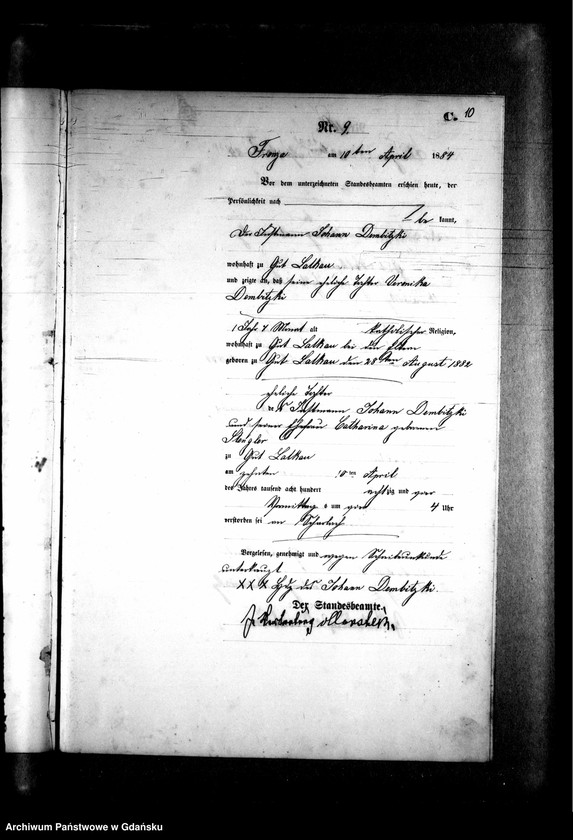 C. 10
Nr. 9.
am 10ten April 1884
Vor dem unterzeichneten Standesbeamten erschien heute, der
Persönlichkeit nach
be kannt,
Der Instmann Johann Dembitzki
wohnhaft zu Gut Lalkau
und zeigte an, daß seine eheliche Tochter Veronika
Dembitzki
1 Jahr 7 Monat alt katholischer Religion,
wohnhaft zu Gut Lalkau bei den Eltern
geboren zu Gut Lalkau den 28ten August 1882
eheliche Tochter
des Instmann Johann Dembitzki
und seiner Ehefrau Catharina geborenen
zu Gut Lalkau
am zehnten 10ten April
des Jahres tausend acht hundert achtzig und vier
Vormittags um vier 4 Uhr
verstorben sei an Scharlach
Vorgelesen, genehmigt und wegen Schreibunkunde
unterkreuzt
XXX Hdz. des Johann Dembitzki.
Der Standesbeamte.
Archiwum Państwowe w Gdańsku